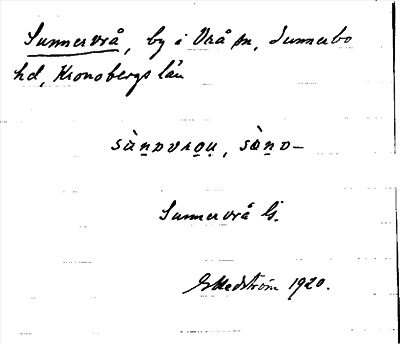 Sunnervrå, by i Vrå sn, Sunnerbo
hd, Kronobergs län
sànDvrou, sànD-
Sunnervrå G.
G Hedström 1920.